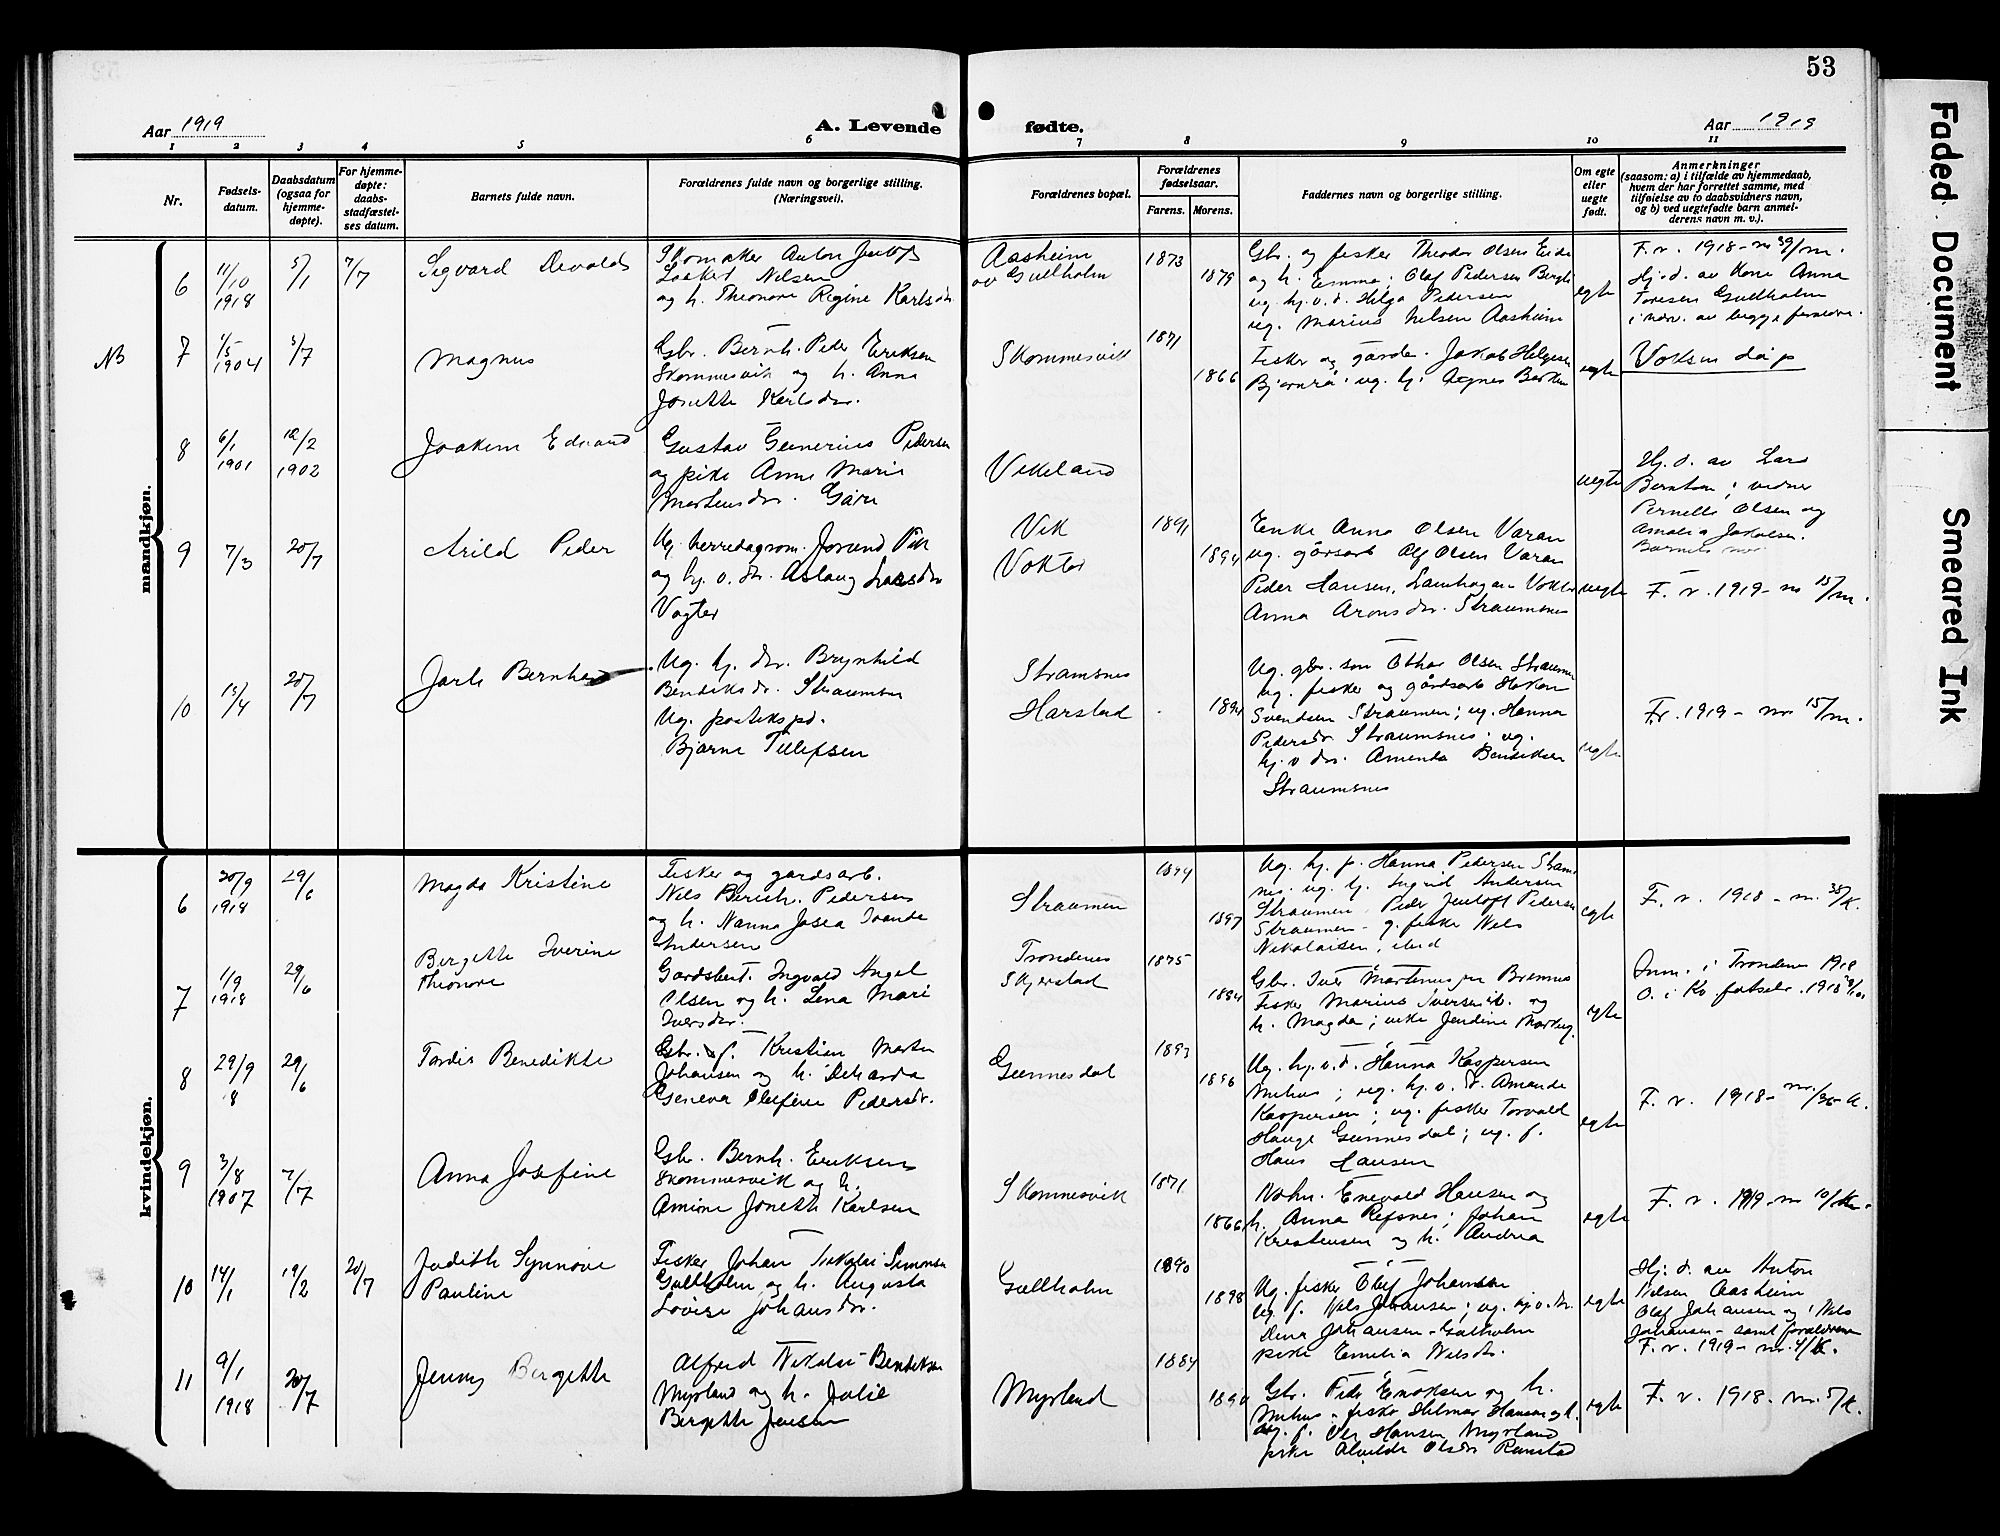 53
Aar 1919
A. Levende fødte.
Aar 1919
1 2 3 4 5 6 7 8 9 10 11
Nr.
Fødsels-
datum.
Daabsdatum
(ogsaa for
hjemme-
døpte).
For hjemme-
døpte:
daabs-
stadfæstel-
ses datum.
Barnets fulde navn.
Forældrenes fulde navn og borgerlige stilling.
(Næringsvei).
Forældrenes bopæl.
Forældrenes
fødselsaar.
Farens. Morens.
Faddernes navn og borgerlige stilling.
Om egte
eller
uegte
født.
Anmerkninger
(saasom: a) i tilfælde av hjemmedaab,
hvem der har forrettet samme, med
tilføielse av to daabsvidners navn,
og b) ved uegtefødte barn anmel-
derens navn m. v.).
mandkjøn.
6
11/10
1918
5/1
7/7
Sigvard
Nilsen
og h. Theonore Regine Karlsdr.
Aasheim
av Gullholm
1873
1879
Gbr. og fisker Theodor Olsen Eide
og h. Emma; Olaf Pedersen
ug. hj.v.d. Helga Pedersen
ug. Marius Nilsen Aasheim
egte
F.r. 1918 - nr 39/m.
Hj.d. av Kone Anna
Toresen Gullholm
i nærv. av begge forældre.
NB
7
1/5
1904
5/7
Magnus
Gbr. Bernh. Peder Eriksen
Skommesvik og h. Anna
Jonette Karlsdr.
Skommesvik
1871
1866
Fisker og gårdbr. Jakob Helgesen
ug. hj. Agnes
egte
Voksen dåp
8
6/1
1901
12/2
1902
Joakim Edvard
Gustav Pedersen
og pike Anne Marie
Martensdr.
Vikeland
uegte
Hj.d. av Lars
Berntsen; vidner
Pernelle Olsen og
Amalia Jakobsen.
Barnets mor
9
7/3
20/7
Arild Peder
Ug. herredagsrm. Jorund Vik
og hj.v.dr. Aslaug Larsdr.
Vogter
Vik
Vokter
1891
1894
Enke Anna Olsen Varan
ug. gårdsarb Olf Olsen Varan
Peder Hansen,
Anna Aronsdr. Straumsnes
uegte
F. r. 1919 - nr 15/m.
10
15/4
20/7
Jarle
Ug. hj. dr. Brynhild
Bendiksdr. Straumsn
Ug. postekspd.
Bjarne Tellefsen
Stramsnes
Harstad
1894
Ug. gbr. søn Othar Olsen
ug. fisker og gårdsarb Hakon
Svendsen Straumen; ug. Hanna
Pedersdr Straumsnes; ug.
hj.v dr. Amenda Bendiksen
Straumsnes
uegte
Fr. 1919 - nr 15/m.
kvindekjøn.
6
30/9
1918
29/6
Magda Kristine
Fisker og gardsarb.
Nils Berith. Pedersen
og h. Nanna Josea
Andersen
Straumen
1894
1897
Ug. hj. p. Hanna Pedersen
nes. ug. hj. Ingrid Andersen
Straumen Peder Jentoft Pedersen
Straumen - g. fisker Nils
Nikolaisen, ibid
egte
F. r. 1918 - nr. 38/K.
7
1/9
1918
29/6
Bergette Iverine
Theonore
Gardsbest. Ingvald Angel
Olsen og h. Lena Mari
Iversdr.
Trondenes
Skjerstad
1875
1884
Gbr. Iver Martinussen Bremnes
Fisker Marius Iversen ib. og
h. Magda; enke Jendine
egte
Inm. i Trondenes 1918
8
29/9
18
29/6
Tordis Benedikte
Gbr. & f. Kristian Martin
Johansen og h.
Geneva Olufine Pedersdr.
Gunnesdal
1893
1896
Ug. hj.v.d. Hanna Kaspersen
ug. hj.v. d. Amanda
Kaspersen; ug. fisker Torvald
Hauge Gunnesdal; ug. f.
Hans Hansen
egte
F. r. 1918 -
9
3/8
1907
7/7
Anna Josefine
Gbr. Bernh. Eriksen
Skommesvik og h.
Jonette Karlsen
Skommesvik
1871
1866
Enevald Hansen og
h. Anna Refsnes; Johan
Kristensen og h. Andrea
egte
F. r. 1919 - nr 10/K.
10
14/1
19/2
20/7
Judith Synnøve
Pauline
Fisker Johan Nikolai Simonsen
Gullholm og h. Augusta
Lovise Johansdr.
Gullholm
1890
1898
Ug. fisker Olaf Johansen
ug. f. Nils Johansen; ug. hj.v.dr.
Dina Johansen - Gulholm
pike Emilia Nilsdr.
egte
Hj. d. av Anton
Nilsen Aasheim
Olaf Johansen og Nils
Johansen - samt forældrene
F. r. 1919 - nr. 4/K.
11
9/1
1918
20/7
Jenny Bergette
Alfred Nikolai Bendiksen
Myrland og h. Julie
Bergette Jensen
Myrland
1884
1890
Gbr. Peder Enoksen og h.
fisker Hilmar Hansen og h.
ug. f. Ole Hansen Myrland
pike Alvilde Olsdr
egte
F. r. 1918. nr. 5/K.
Faded Document
Smeared Ink